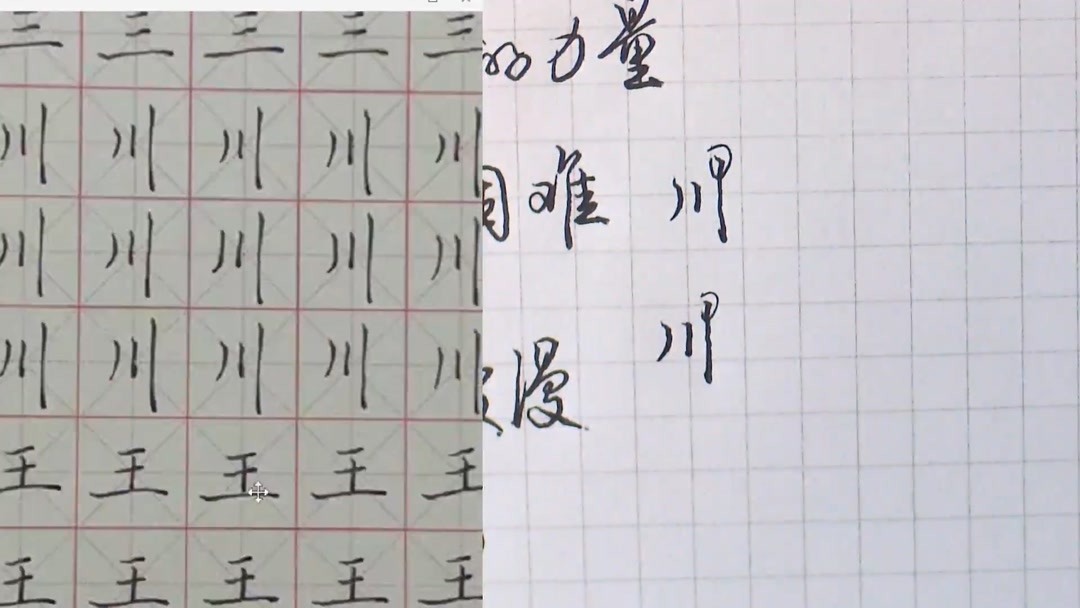 三 三 三 三 三
川 川 川 川 川
川 川 川 川 川
川 川 川 川 川
王 王 王 王 王
王 王 王 王 王
的力量
困难 川
川
漫